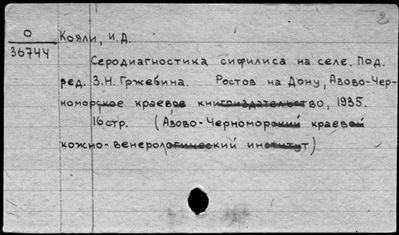 О
36744
Кояли, И.Д.
Серодиагностика сифилиса на селе. Под.
ред. З.Н. Гржебина. Ростов на Дону, Азово-Чер-
номорское краевое книгоиздательство, 1935.
16 стр. (Азово-Черноморский краевой
кожно-венерологический институт)